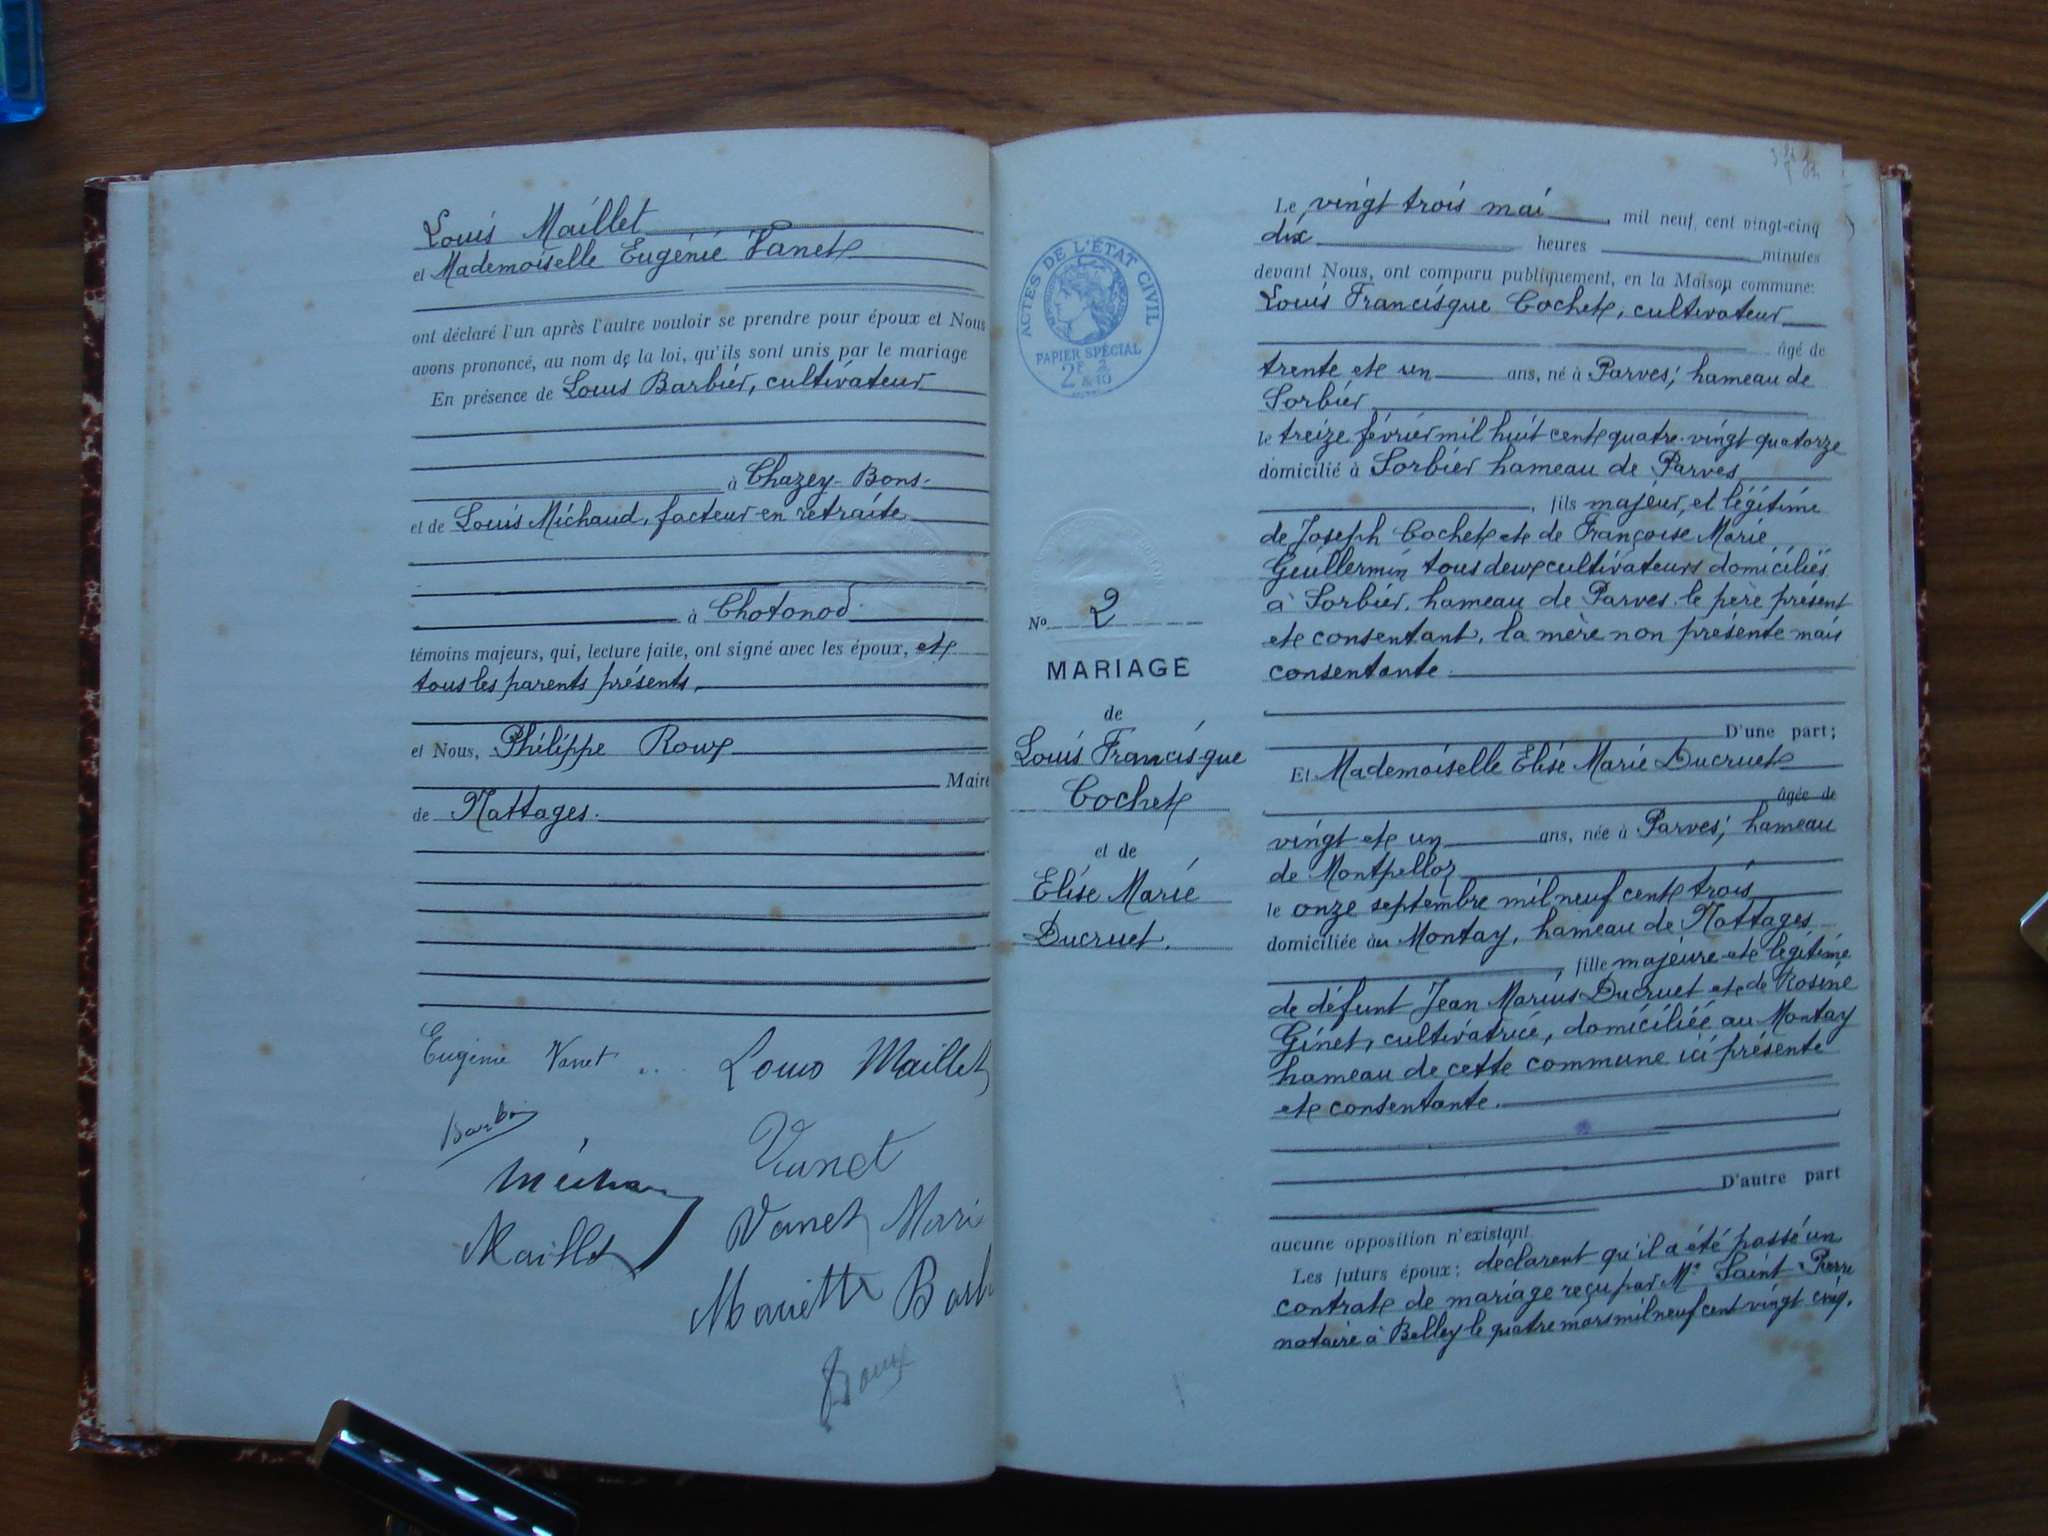 Louis Maillet
et Mademoiselle Eugénie Vanet
ont déclaré l'un après l'autre vouloir se prendre pour époux et Nous
avons prononcé, au nom de la loi, qu'ils sont unis par le mariage
En présence de Louis Barbier, cultivateur
à Chazey-Bons.
et de Louis Michaud, facteur en retraite
à Chotonod.
témoins majeurs, qui, lecture faite, ont signé avec les époux, et
tous les parents présents.
et Nous, Philippe Roux
Maire
de Nattages.
Eugénie Vanet Louis Maillet
Vanet
Maillet
Vanet Mari
Mariette Barb
Roux
ACTES DE L'ÉTAT CIVIL
PAPIER SPÉCIAL
No 2
MARIAGE
de
Louis Francisque
Cochet
et de
Elise Marie
Ducruet.
Le vingt trois mai mil neuf cent vingt-cinq
dix heures minutes
devant Nous, ont comparu publiquement, en la Maison commune:
Louis Francisque Cochet, cultivateur
âgé de
trente et un ans, né à Parves, hameau de
Sorbier
le treize février mil huit cent quatre-vingt quatorze
domicilié à Sorbier hameau de Parves
, fils majeur et légitime
de Joseph Cochet et de Françoise Marie
Guillermin tous deux cultivateurs domiciliés
à Sorbier, hameau de Parves. le père présent
et consentant, la mère non présente mais
consentante.
D'une part;
Et Mademoiselle Elise Marie Ducruet
âgée de
vingt et un ans, née à Parves, hameau
de Montpelloz
le onze septembre mil neuf cent trois
domiciliée au Montay, hameau de Nattages
, fille majeure et légitime
de défunt Jean Marius Ducruet et de Rosine
Ginet, cultivatrice, domiciliée au Montay
hameau de cette commune ici présente
et consentante.
D'autre part
aucune opposition n'existant.
Les futurs époux: déclarent qu'il a été passé un
contrat de mariage reçu par Me Saint-Pierre
notaire à Belley le quatre mars mil neuf cent vingt cinq.